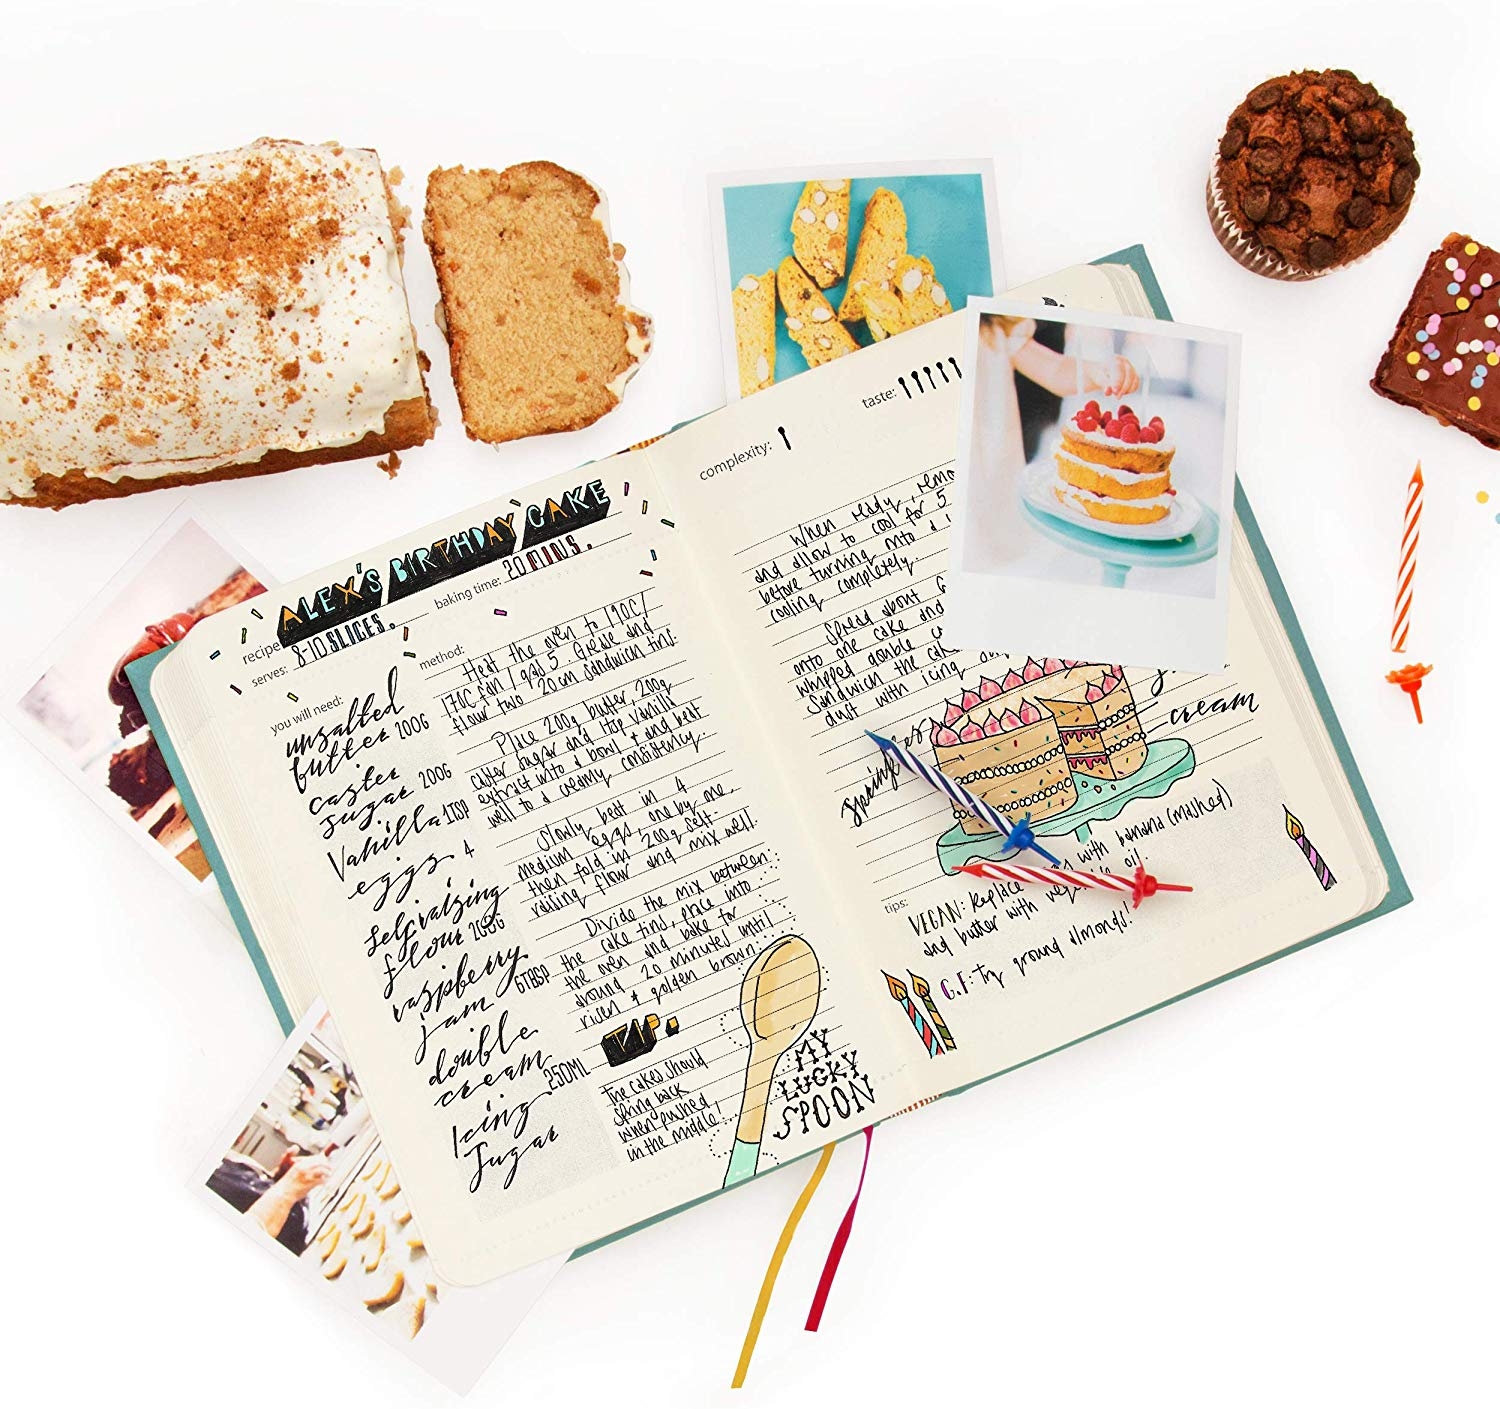 recipe: ALEX'S BIRTHDAY CAKE
serves: 8-10 SLICES.
baking time: 20 MINS.
you will need:
unsalted
butter 200G
caster
sugar 200G
Vanilla 1TSP
eggs 4
self raising
flour 200G
raspberry
jam 6TBSP
double
cream 250ML
Icing
Sugar
method:
Heat the oven to 190C/
170C fan/gas 5. Grease and
flour two 20cm sandwich tins.
Place 200g butter, 200g
caster sugar and 1tsp vanilla
extract into a bowl + and beat
well to a creamy consistency.
Slowly beat in 4
medium eggs, one by one,
then fold in 200g self-
raising flour and mix well.
Divide the mix between
the cake tins, place into
the oven and bake for
around 20 minutes until
risen + golden brown.
TIP:
The cakes should
spring back
when pushed
in the middle!
MY
LUCKY
SPOON
complexity:
taste:
When ready,
and allow to cool for 5
before turning onto a
cooling completely.
Spread about 6
onto one cake and
whipped double
Sandwich the
dust with icing
sprinkles
cream
tips:
VEGAN: Replace with banana (mashed)
and butter with oil.
G.F: Try ground almonds!